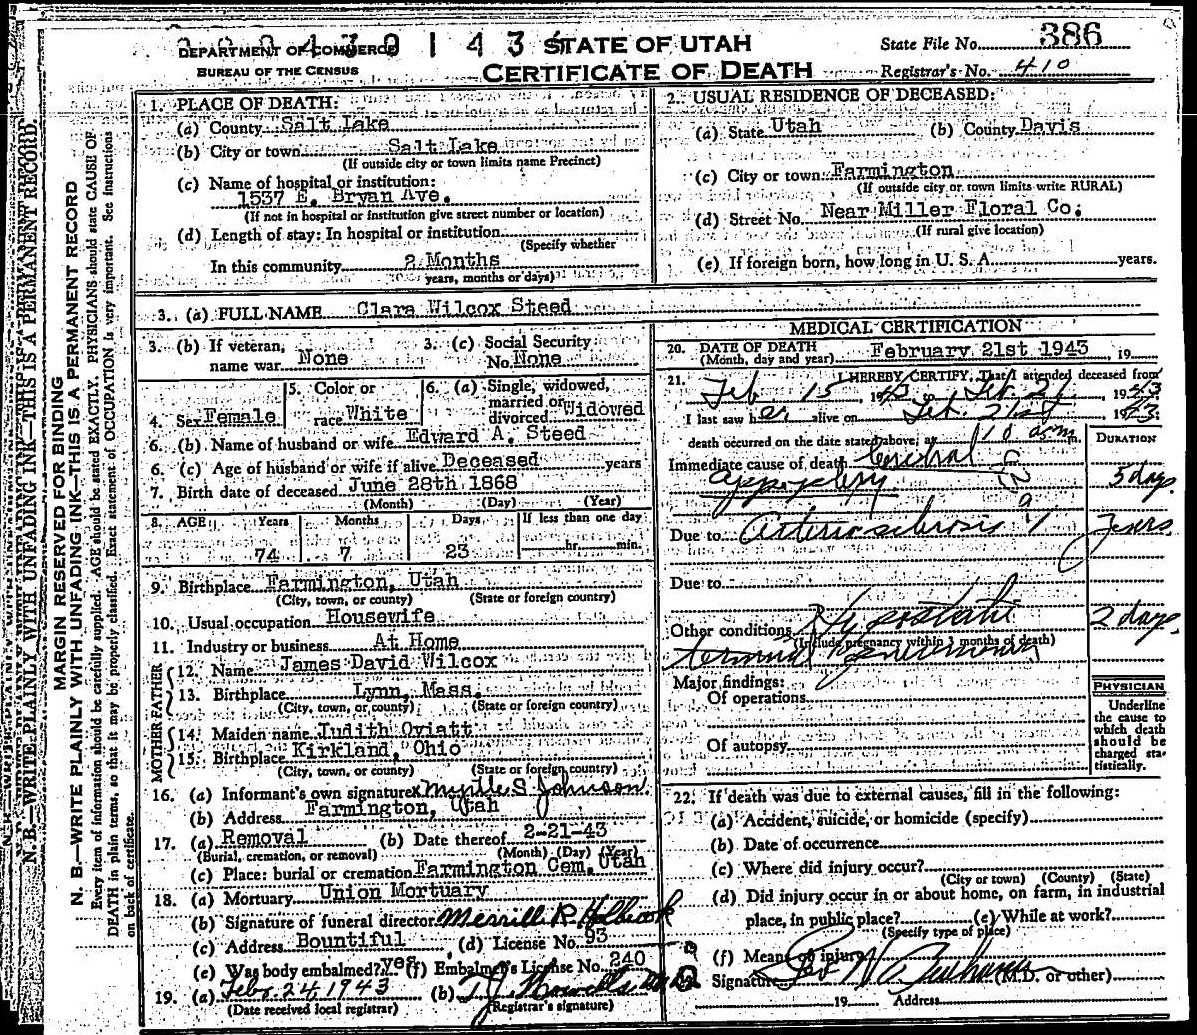 DEPARTMENT OF COMMERCE
BUREAU OF THE CENSUS
STATE OF UTAH
CERTIFICATE OF DEATH
State File No. 386
Registrar's No. 410
MARGIN RESERVED FOR BINDING
N. B.—WRITE PLAINLY WITH UNFADING INK—THIS IS A PERMANENT RECORD
Every item of information should be carefully supplied. AGE should be stated EXACTLY. PHYSICIANS should state CAUSE OF
DEATH in plain terms, so that it may be properly classified. Exact statement of OCCUPATION is very important. See instructions
on back of certificate.
1. PLACE OF DEATH:
(a) County Salt Lake
(b) City or town Salt Lake
(If outside city or town limits name Precinct)
(c) Name of hospital or institution:
1537 E. Bryan Ave.
(If not in hospital or institution give street number or location)
(d) Length of stay: In hospital or institution
(Specify whether
In this community 2 Months
years, months or days)
2. USUAL RESIDENCE OF DECEASED:
(a) State Utah (b) County Davis
(c) City or town Farmington
(If outside city or town limits write RURAL)
(d) Street No. Near Miller Floral Co.
(If rural give location)
(e) If foreign born, how long in U. S. A. years.
3. (a) FULL NAME Clara Wilcox Steed
3. (b) If veteran, name war None
3. (c) Social Security No. None
4. Sex Female
5. Color or race White
6. (a) Single, widowed, married or divorced Widowed
6. (b) Name of husband or wife Edward A. Steed
6. (c) Age of husband or wife if alive Deceased years
7. Birth date of deceased June 28th 1868
(Month) (Day) (Year)
8. AGE Years Months Days If less than one day
74 7 23 hr. min.
9. Birthplace Farmington, Utah
(City, town, or county) (State or foreign country)
10. Usual occupation Housewife
11. Industry or business At Home
FATHER
12. Name James David Wilcox
13. Birthplace Lynn, Mass.
(City, town, or county) (State or foreign country)
MOTHER
14. Maiden name Judith Oviatt
15. Birthplace Kirkland, Ohio
(City, town, or county) (State or foreign country)
16. (a) Informant's own signature Myrtle S Johnson
(b) Address Farmington, Utah
17. (a) Removal (b) Date thereof 2-21-43
(Burial, cremation, or removal) (Month) (Day) (Year)
(c) Place: burial or cremation Farmington Cem. Utah
18. (a) Mortuary Union Mortuary
(b) Signature of funeral director Merrill R Holbrook
(c) Address Bountiful (d) License No. 93
(e) Was body embalmed? yes (f) Embalmer's License No. 240
19. (a) Feby. 24 1943 (b)
(Date received local registrar) (Registrar's signature)
MEDICAL CERTIFICATION
20. DATE OF DEATH
(Month, day and year) February 21st 1943, 19
21. I HEREBY CERTIFY, That I attended deceased from
Feb 15, 1943, Feb. 21, 1943
I last saw her alive on Feb. 21st 1943
death occurred on the date stated above, at 10 a.m.
DURATION
Immediate cause of death Cerebral
appoplexy 5 days
Due to Arteriosclerosis years
Due to
Other conditions Hypostatic 2 days
(Include pregnancy within 3 months of death)
terminal pneumonia
Major findings:
Of operations
Of autopsy
PHYSICIAN
Underline
the cause to
which death
should be
charged sta-
tistically.
22. If death was due to external causes, fill in the following:
(a) Accident, suicide, or homicide (specify)
(b) Date of occurrence
(c) Where did injury occur?
(City or town) (County) (State)
(d) Did injury occur in or about home, on farm, in industrial
place, in public place? (e) While at work?
(Specify type of place)
(f) Means of injury
Signature (M.D. or other)
19 Address